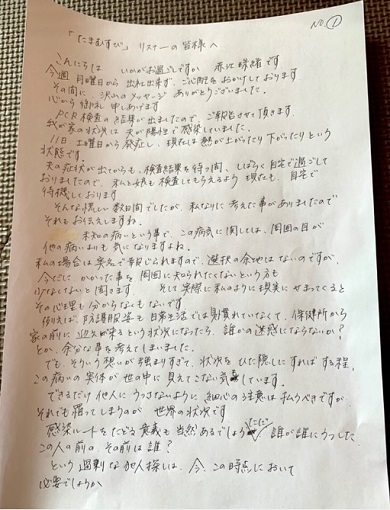 No.①
「「たまむすび」リスナーの皆様へ
こんにちは いかがお過ごしですか 赤江珠緒です
今週月曜日から お休み出来ず、ご心配をおかけしております
その間に 沢山のメッセージ ありがとうございました。
心から御礼申しあげます
PCR検査の結果が出ましたので、ご報告させて頂きます。
我が家の状況は 夫が陽性で感染していました。
11日 土曜日から発症し、現在は熱が上がったり下がったりという
状態です。
夫の症状が出てからも、検査結果を待つ間、しばらく自宅で過ごして
おりましたので、私と娘も検査してもらえるよう 現在も、自宅で
待機しております
そんな慌しい数日間でしたが、私なりに考えた事がありましたので
それをお伝えしますね。
未知の病という事で、この病気に関しては、周囲の目が
他の病いよりも気になりますよね。
私の場合は実名で報じられますので、選択の余地はないのですが、
今だに かかった事を周囲に知られたくないという方も
少なくないと聞きます そして実際に私のように現実にせまってくると
その心理も分からなくもないです
例えば、防護服姿も日常生活では見慣れていなくて、保健所から
家の前に迎えが来るという状況になったら、誰かの迷惑にならないか?
とか、余分な事を考えてしまいました。
でも そういう想いが強まりすぎて、状況をひた隠しにすればする程、
この病いの実体が世の中に見えてこない気がしています。
できるだけ他人にうつさないように 細心の注意は払うべきですが
それでも罹ってしまうのが 世界の状況です
感染ルートをたどる意義も当然あるでしょう ただただ 誰が誰にうつした
この人の前の、その前は誰?
という過剰な犯人探しは、今、この時点において
必要でしょうか